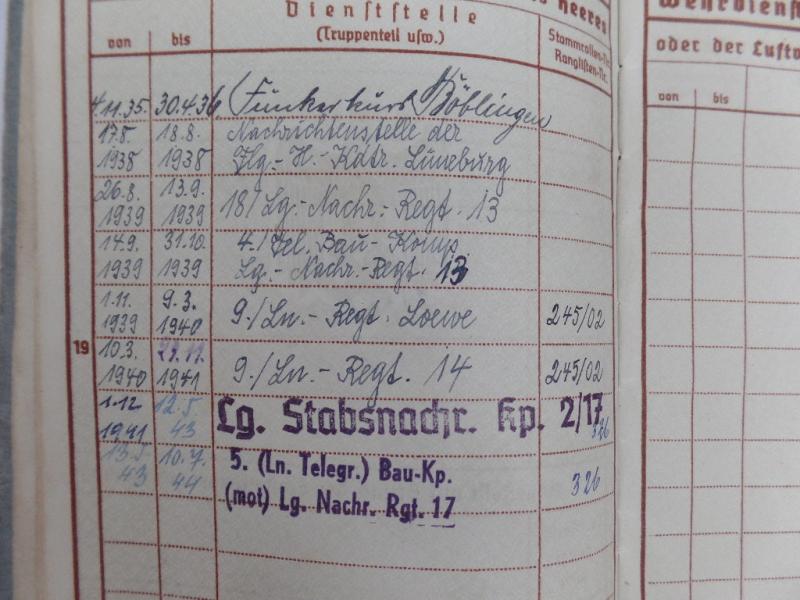 Heeres
Wehrdienst
Dienststelle
(Truppenteil usw.)
von bis
Stammrollen-Nr.
Ranglisten-Nr.
oder der Luftw
von bis
4.11.35. 30.4.36 Funkerkurs Böblingen
17.8. 18.8. Nachrichtenstelle der
1938 1938 Flg.-H.-Kdtr. Lüneburg
26.8. 13.9.
1939 1939 18/Lg.-Nachr.-Regt. 13
14.9. 31.10. 4./Tel. Bau-Komp
1939 1939 Lg.-Nachr.-Regt. 13
1.11. 9.3.
1939 1940 9./Ln.-Regt. Loewe 245/02
19 10.3.
1940 1941 9./Ln.-Regt. 14 245/02
1.12 12.5 Lg. Stabsnachr. Kp. 2/17
1941 43 326
5. (Ln. Telegr.) Bau-Kp.
43 44 326
(mot) Lg. Nachr. Rgt. 17